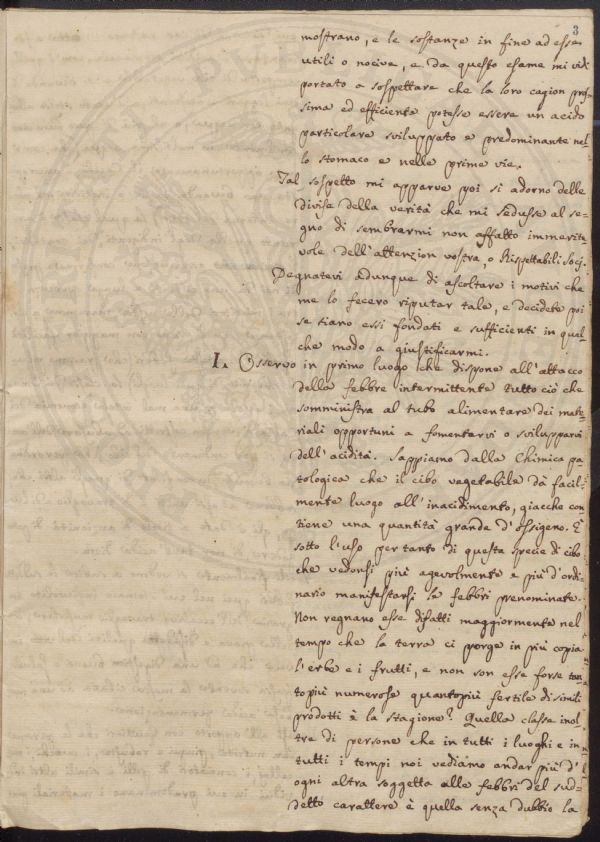 3
mostrano, e le sostanze in fine ad esse
utili o nocive, e da questo esame mi vidi
portato a sospettare che la loro cagion pros-
sima ed efficiente potesse essere un acido
particolare sviluppato e predominante nel-
lo stomaco e nelle prime vie.
Tal sospetto mi apparve poi sì adorno delle
divise della verità che mi sedusse al se-
gno di sembrarmi non affatto immerite-
vole dell'attenzion vostra, o Rispettabili Socj.
Degnatevi adunque di ascoltare i motivi che
me lo fecero riputar tale, e decidete poi
se siano essi fondati e sufficienti in qual-
che modo a giustificarmi.
I. Osservo in primo luogo che dispone all'attacco
della febbre intermittente tutto ciò che
somministra al tubo alimentare dei mate-
riali opportuni a fomentarvi o svilupparvi
dell'acidità. Sappiamo dalla Chimica pa-
tologica che il cibo vegetabile dà facil-
mente luogo all'inacidimento, giacche con-
tiene una quantità grande d'ossigeno. È
sotto l'uso pertanto di questa specie di cibo
che vedonsi più agevolmente e più d'ordi-
nario manifestarsi le febbri prenominate.
Non regnano esse difatti maggiormente nel
tempo che la terra ci porge in più copia
l'erbe e i frutti, e non son esse forse tan-
to più numerose quanto più fertile di simili
prodotti è la stagione? Quella classe inol-
tre di persone che in tutti i luoghi e in
tutti i tempi noi vediamo andar più d'
ogni altra soggetta alle febbri del sud-
detto carattere è quella senza dubbio la